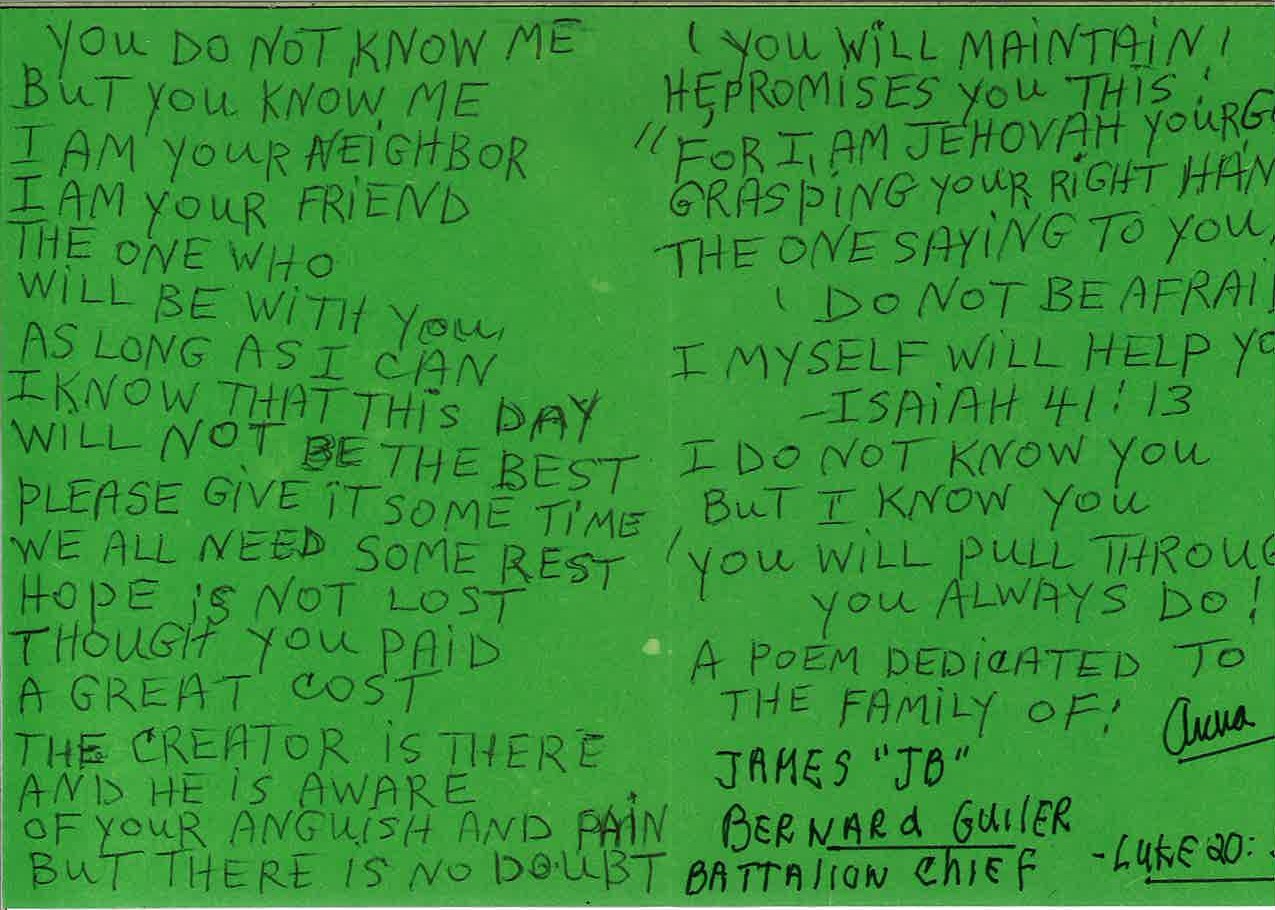 YOU DO NOT KNOW ME
BUT YOU KNOW ME
I AM YOUR NEIGHBOR
I AM YOUR FRIEND
THE ONE WHO
WILL BE WITH YOU,
AS LONG AS I CAN
I KNOW THAT THIS DAY
WILL NOT BE THE BEST
PLEASE GIVE IT SOME TIME
WE ALL NEED SOME REST
HOPE IS NOT LOST
THOUGH YOU PAID
A GREAT COST
THE CREATOR IS THERE
AND HE IS AWARE
OF YOUR ANGUISH AND PAIN
BUT THERE IS NO DOUBT
(YOU WILL MAINTAIN!
HE PROMISES YOU THIS:
"FOR I, AM JEHOVAH YOUR G
GRASPING YOUR RIGHT HAN
THE ONE SAYING TO YOU,
'DO NOT BE AFRAI
I MYSELF WILL HELP YO
-ISAIAH 41:13
I DO NOT KNOW YOU
BUT I KNOW YOU
'YOU WILL PULL THROUG
YOU ALWAYS DO!
A POEM DEDICATED TO
THE FAMILY OF:
Anna
JAMES "JB"
BERNARd GUIlER
BATTAlION ChIEF
-LUKE 20: